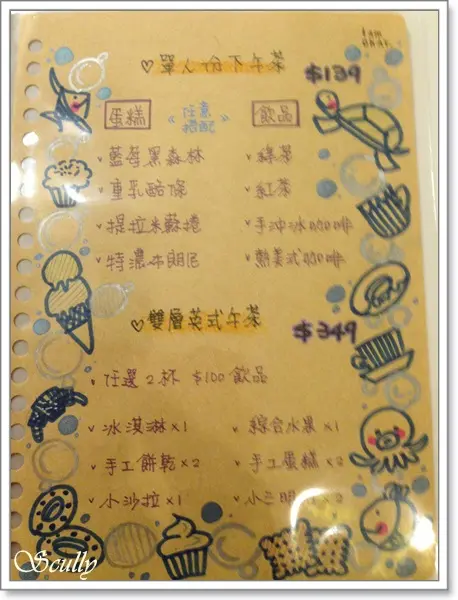 I am
♡單人份下午茶 $139
蛋糕 任意搭配 飲品
ˇ藍莓黑森林 ˇ綠茶
ˇ重乳酪條 ˇ紅茶
ˇ提拉米蘇捲 ˇ手沖冰咖啡
ˇ特濃布朗尼 ˇ熱美式咖啡
♡雙層英式午茶 $349
ˇ任選2杯 $100飲品
ˇ冰淇淋x1 ˇ綜合水果x1
ˇ手工餅乾x2 ˇ手工蛋糕x2
ˇ小沙拉x1 ˇ小三明
Scully